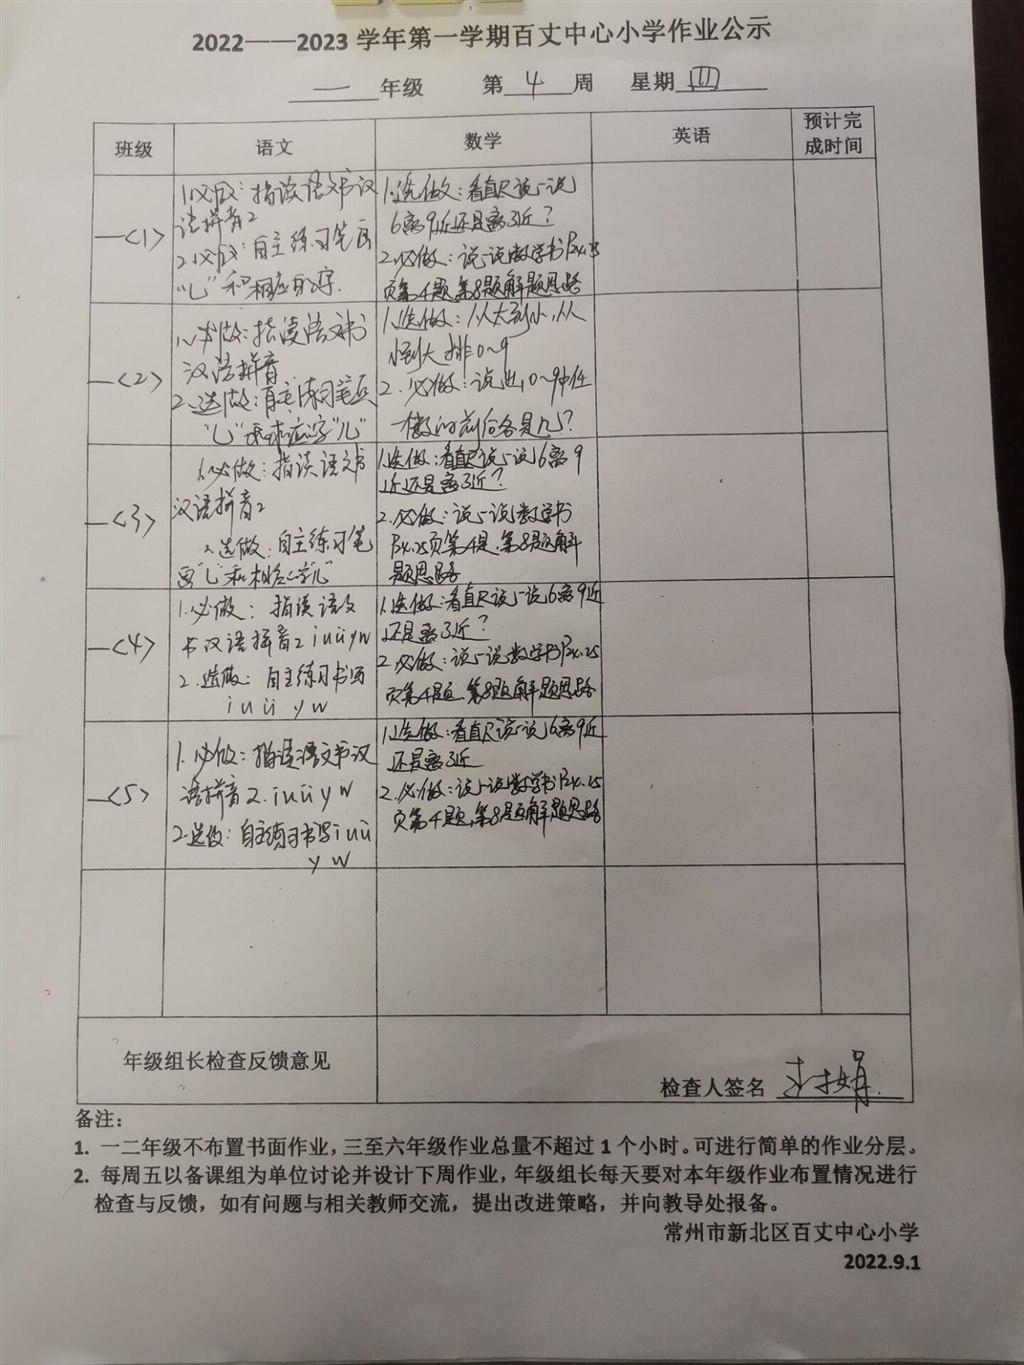 2022——2023 学年第一学期百丈中心小学作业公示
一 年级 第 4 周 星期 四
班级 语文 数学 英语 预计完成时间
一<1>
1.必做：指读语文书汉
语拼音2
2.必做：自主练习笔画
“乚”和相应的字.
1.选做：看直尺说一说
6离9近还是离3近？
2.必做：说一说数学书P24.25
页第4题,第8题解题思路
一<2>
1.必做：指读语文书
汉语拼音
2.选做：自主练习笔画
“乚”和相应字“儿”
1.选做：从大到小,从
小到大排0~9
2.必做：说出0~9中任
一数的前后各是几？
一<3>
1.必做：指读语文书
汉语拼音2
2.选做：自主练习笔
画“乚”和相应字“儿”
1.选做：看直尺说一说6离9
近还是离3近？
2.必做：说一说数学书
P24.25页第4题.第8题解
题思路
一<4>
1.必做：指读语文
书汉语拼音2 i u ü y w
2.选做：自主练习书写
i u ü y w
1.选做：看直尺说一说6离9近
还是离3近？
2.必做：说一说数学书P24.25
页第4题,第8题解题思路
一<5>
1.必做：指读语文书汉
语拼音2.i u ü y w
2.选做：自主练习书写i u ü
y w
1.选做：看直尺说一说6离9近
还是离3近
2.必做：说一说数学书P24.25
页第4题,第8题解题思路
年级组长检查反馈意见
检查人签名
备注：
1. 一二年级不布置书面作业，三至六年级作业总量不超过 1 个小时。可进行简单的作业分层。
2. 每周五以备课组为单位讨论并设计下周作业，年级组长每天要对本年级作业布置情况进行
检查与反馈，如有问题与相关教师交流，提出改进策略，并向教导处报备。
常州市新北区百丈中心小学
2022.9.1